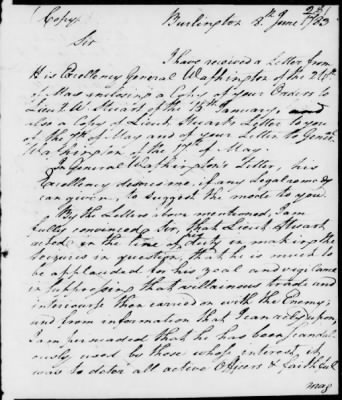 (Copy)
Burlington 8th June 1783
Sir
I have received a Letter from
His Excellency General Washington of the
of May enclosing a Copy of your Orders to
Lieut W. Stewart of the 15th January, and
also a Copy of Lieut Stewarts Letter to you
of the 7th of May and of your Letter to Genl
Washington of the of May.
In General Washington's Letter, his
Excellency desires me, if any legal remedy
can given, to suggest the mode to you.
By the Letters above mentioned, I am
fully convinced Sir, that Lieut Stewart
acted in the line of his duty in making the
seizures in question, that he is much to
be applauded for his zeal and vigilance
in suppressing that villainous trade and
intercourse then carried on with the Enemy;
and from information that I can rely upon,
I am persuaded that he has been scandal-
ously used by those whose interest it
was to deter all active Officers & faithful
may